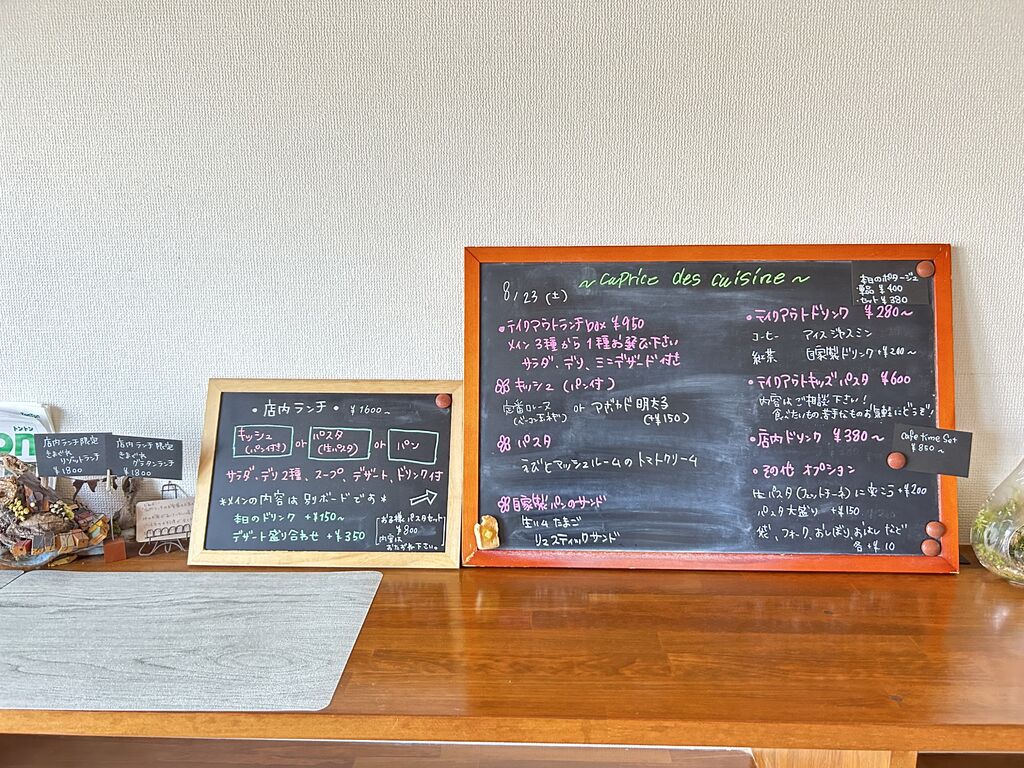 トントン
on
店内ランチ限定
きまぐれ
リゾットランチ
¥1800
店内ランチ限定
きまぐれ
グラタンランチ
¥1800
・店内ランチ・ ¥1600~
キッシュ
(パン付き)
or
パスタ
(生パスタ)
or
パン
サラダ、デリ2種、スープ、デザート、ドリンク付
*メインの内容は別ボードです*
本日のドリンク +¥150~
デザート盛り合わせ +¥350
お子様パスタセット
¥800
内容は
おたずね下さい。
~caprice des cuisine~
8/23(土)
・テイクアウトランチbox ¥950
メイン3種から1種お選び下さい
サラダ、デリ、ミニデザート付き
キッシュ(パン付)
定番ロレーヌ
or アボカド明太子
(+¥150)
パスタ
えびとマッシュルームのトマトクリーム
自家製パンのサンド
生ハムたまご
リュスティックサンド
本日のポタージュ
・単品 ¥400
・セット ¥380
・テイクアウトドリンク ¥280~
コーヒー アイスジャスミン
紅茶 自家製ドリンク+¥200~
・テイクアウトキッズパスタ ¥600
内容はご相談下さい!
食べたいもの苦手なものお気軽にどうぞ!
・店内ドリンク ¥380~
cafe time set
¥850~
・その他 オプション
生パスタ(フェットチーネ)に変こう+¥200
パスタ大盛り +¥150
袋、フォーク、おしぼり、おはしなど
各+¥10